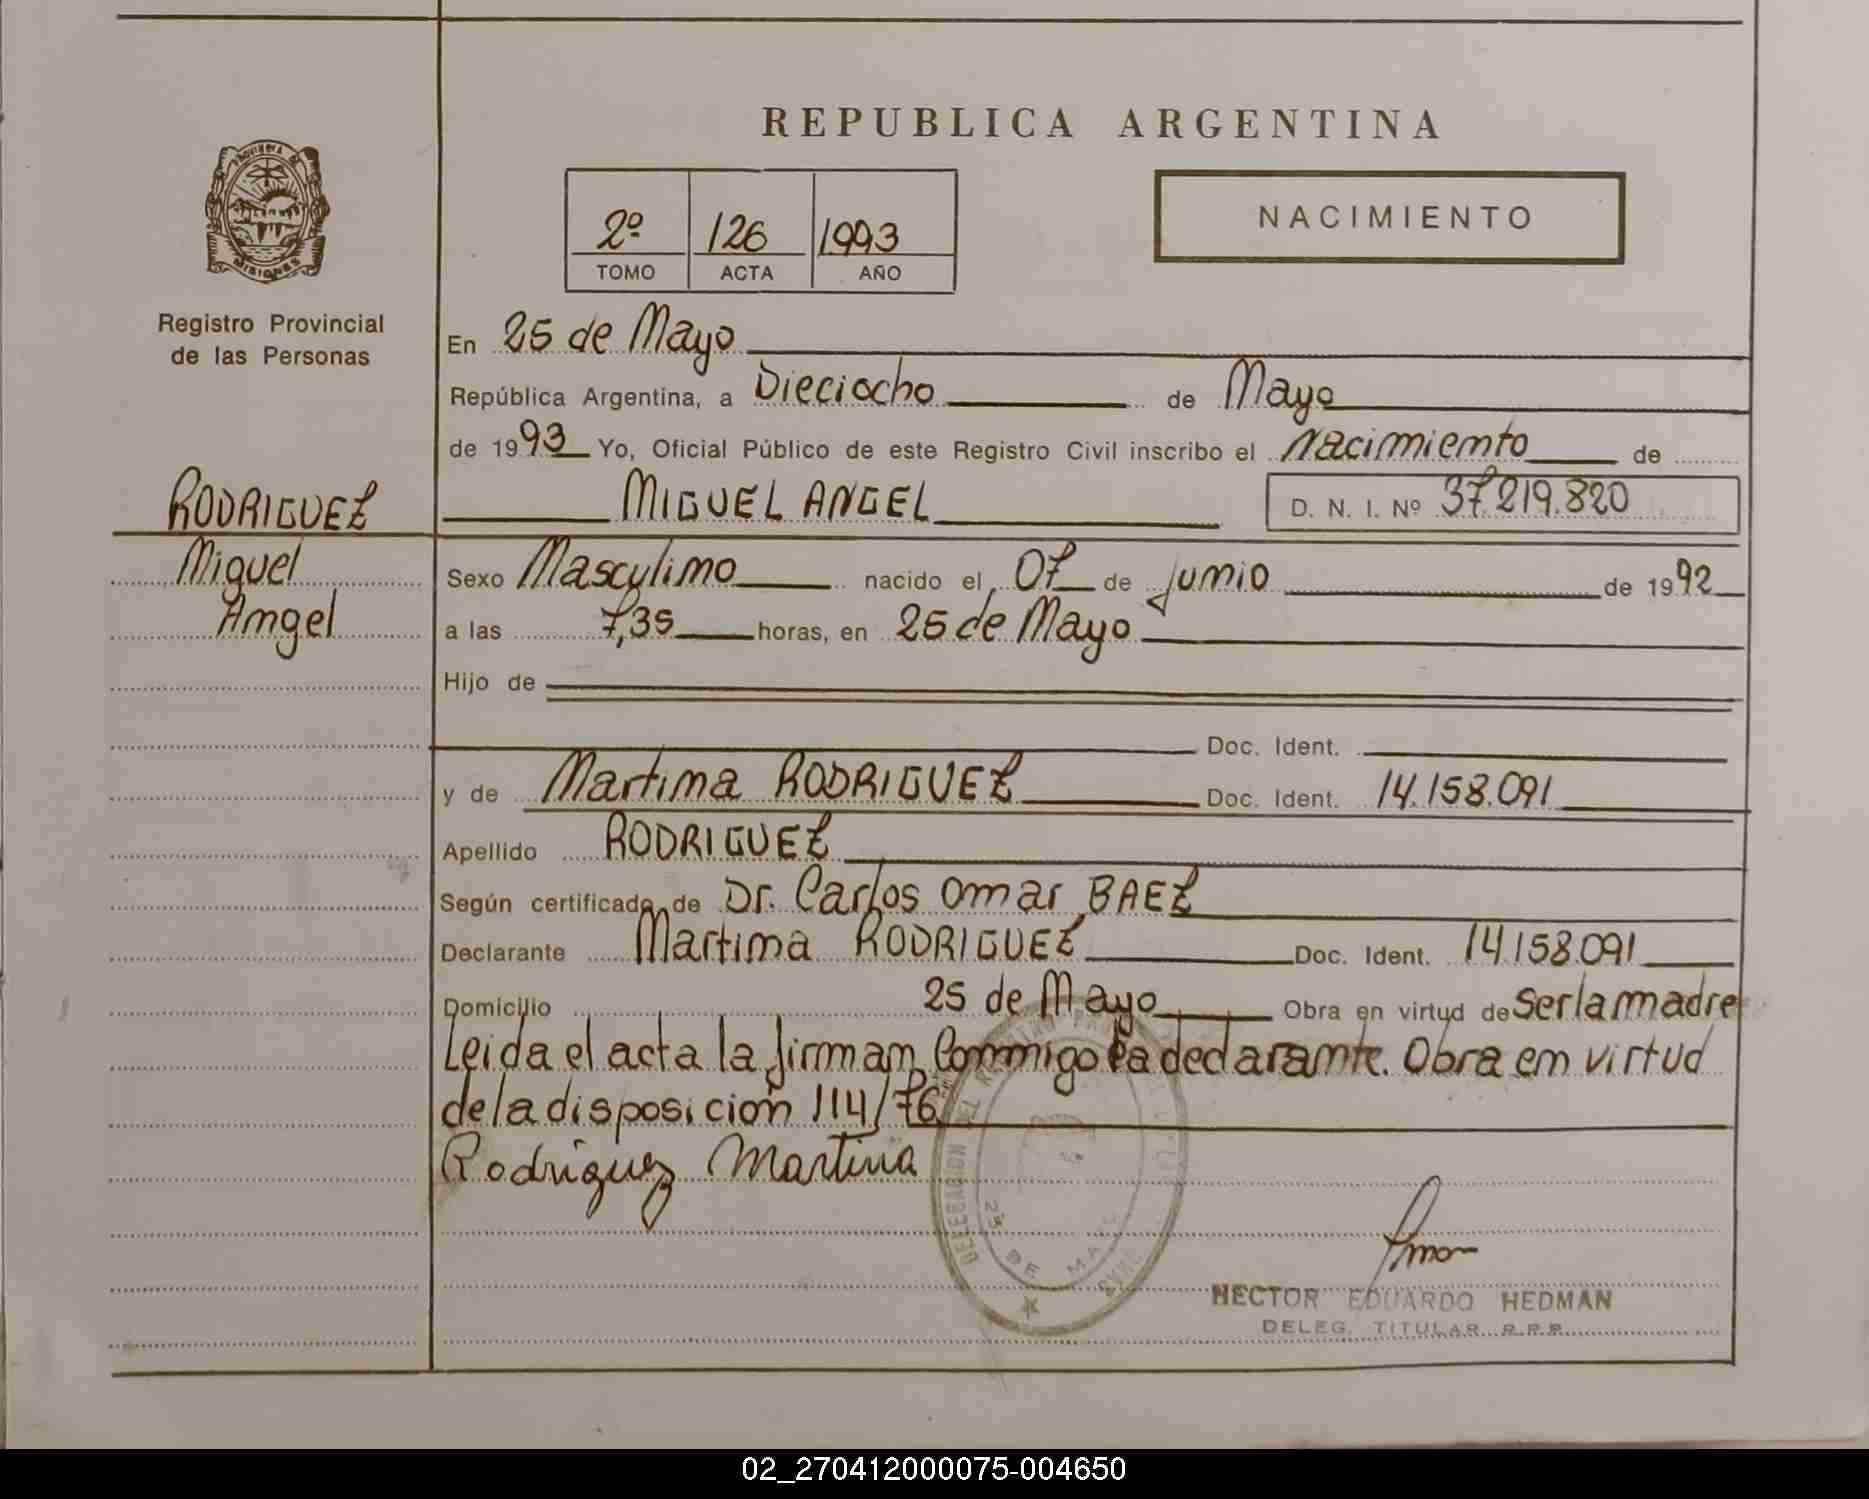 REPUBLICA ARGENTINA
PROVINCIA DE
MISIONES
Registro Provincial
de las Personas
2º 126 1993
TOMO ACTA AÑO
NACIMIENTO
En 25 de Mayo
República Argentina, a Dieciocho de Mayo
de 1993 Yo, Oficial Público de este Registro Civil inscribo el Nacimiento de
RODRIGUEZ
MIGUEL ANGEL D. N. I. Nº 37.219.820
Miguel
Angel
Sexo Masculino nacido el 07 de Junio de 1992
a las 7,35 horas, en 25 de Mayo
Hijo de
Doc. Ident.
y de Martina RODRIGUEZ Doc. Ident. 14.158.091
Apellido RODRIGUEZ
Según certificado de Dr. Carlos Omar BAEZ
Declarante Martina RODRIGUEZ Doc. Ident. 14.158.091
Domicilio 25 de Mayo Obra en virtud de Ser la madre
Leida el acta la firman Conmigo la declarante. Obra en virtud
de la disposición 114/76
Rodriguez Martina
DELEGACION DEL
25 DE MAYO
HECTOR EDUARDO HEDMAN
DELEG. TITULAR R.P.P.
02_270412000075-004650